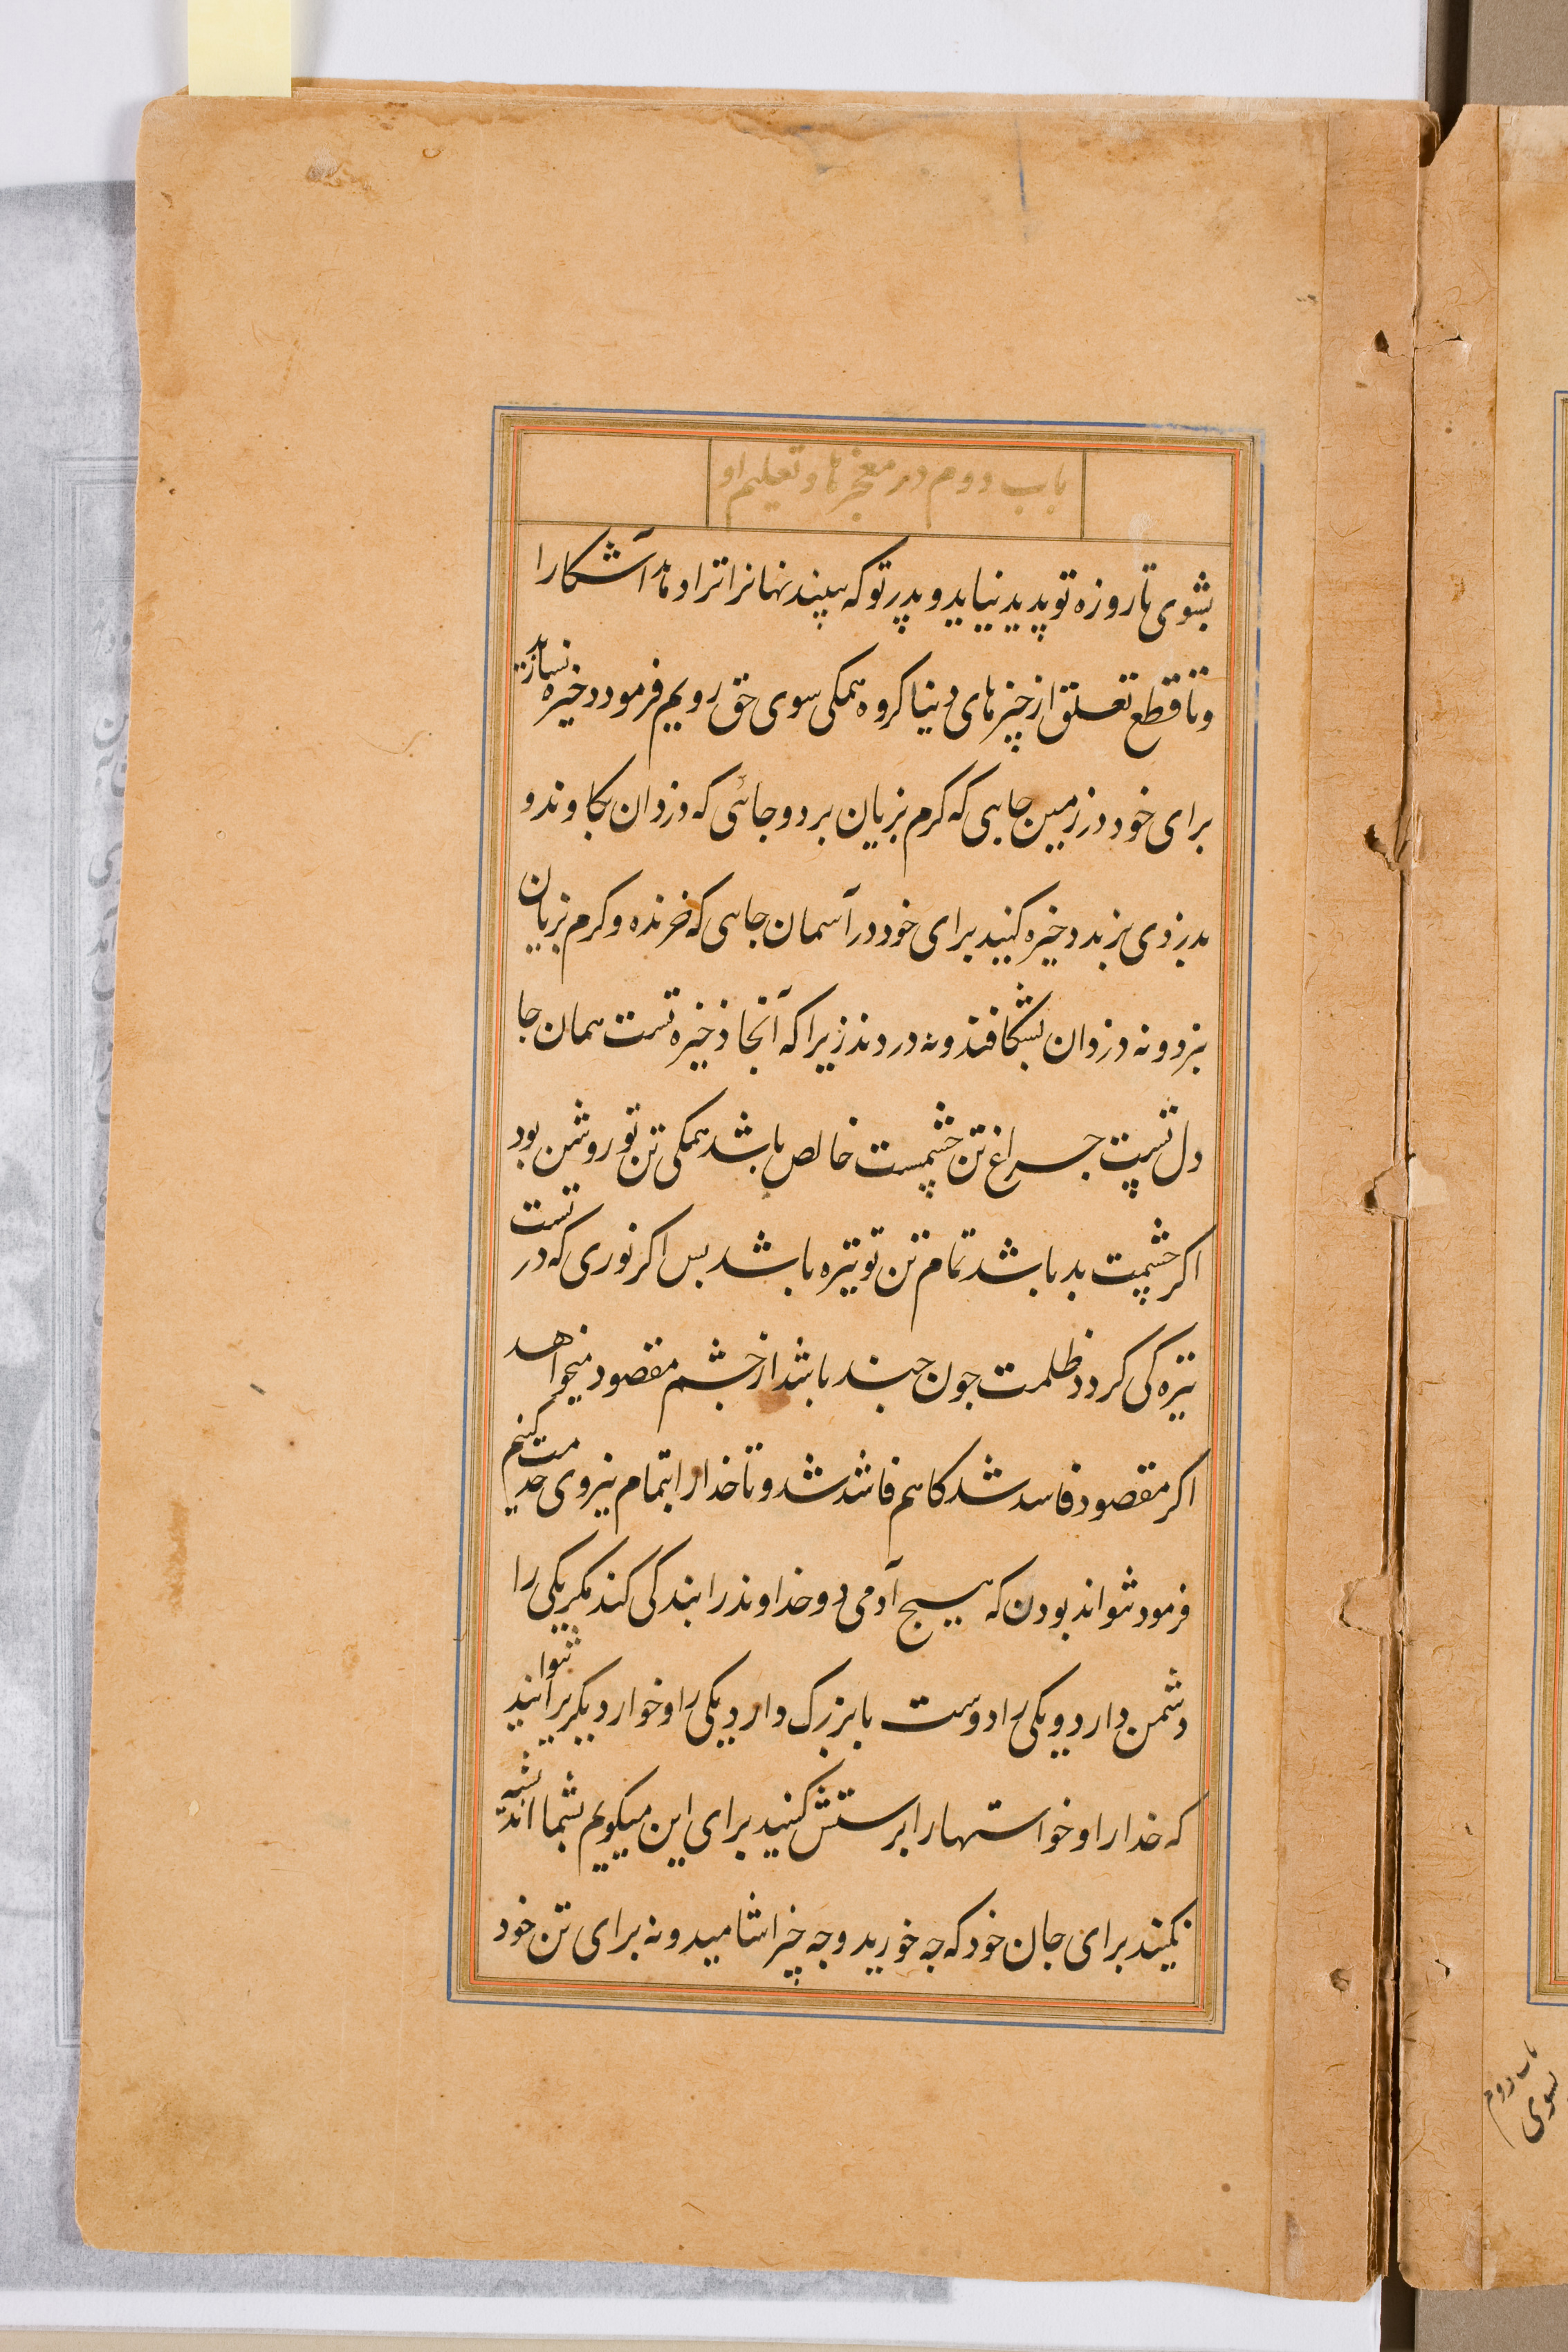 باب دوم در معجزها و تعلیم او
بشوی تا روزه تو پدید نیاید و پدر تو که بیند نهانرا ترا و ماند آشکارا
و تا قطع تعلق از چیزهای دنیا کروه همکی سوی حق رویم فرمود دخیره نسازید
برای خود در زمین جایی که کرم بزیان برد و جائی که دزدان بکاوند و
بدزدی بزبد دخیره کنید برای خود در آسمان جایی که خرنده و کرم بزیان
نبرد و نه دزدان بشکافند و نه دردند زیرا که آنجا ذخیره تست همان جا
دل تست جراغ تن چشمست خالص باشد همکی تن تو روشن بود
اکر چشمت بد باشد تمام تن تو تیره باشد بس اکر نوری که در تست
تیره کی کردد ظلمت جون جند باشد از جشم مقصود میخواهد
اکر مقصود فاسد شد کا هم فاشد شد و تا خدا را بتمام نیروی خدمت کنیم
فرمود نتواند بودن که هیسج آدمی دو خداوند را بندکی کند مکر یکی را
دشمن دارد و یکی را دوست یا بزرک دارد یکی را و خوار دیکریرا نتوانید
که خدا را و خواستها را برستش کنید برای این میکویم بشما اندیشه
نکنید برای جان خود که جه خورید و جه چیز اشامید و نه برای تن خود
باب دوم
بسوی